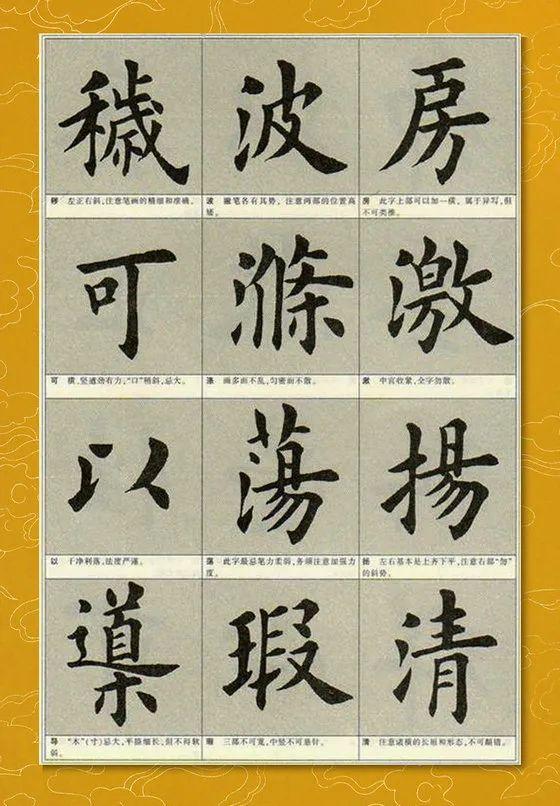 房
房 此字上部可以加一横，属于异写，但
不可类推。
激
激 中宫收紧，全字勿散。
揚
扬 左右基本是上齐下平，注意右部“勿”
的斜势。
清
清 注意诸横的长短和形态，不可颠错。
波
波 撇笔各有其势，注意两部的位置高
矮。
滌
涤 画多而不乱，匀密而不散。
蕩
荡 此字最忌笔力柔弱，务须注意加强力
度。
瑕
瑕 三部不可宽，中竖不可悬针。
穢
秽 左正右斜，注意笔画的精细和准确。
可
可 横、竖遒劲有力，“口”稍斜，忌大。
以
以 干净利落，法度严谨。
導
导 “木”(寸)忌大，平捺细长，但不得软
弱。